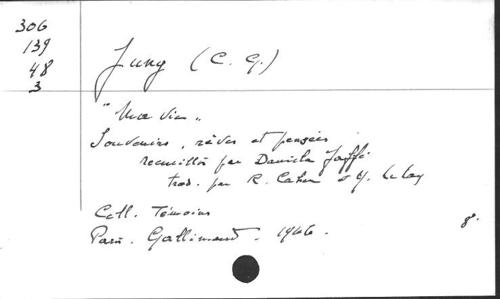 306
139
48
3
Jung (C. G.)
"Ma vie"
Souvenirs, rêves et pensées
recueillis par Daniela Jaffé
trad. par R. Cahen et Y. Le Lay
Coll. Témoins
Paris. Gallimard. 1966.
8°.